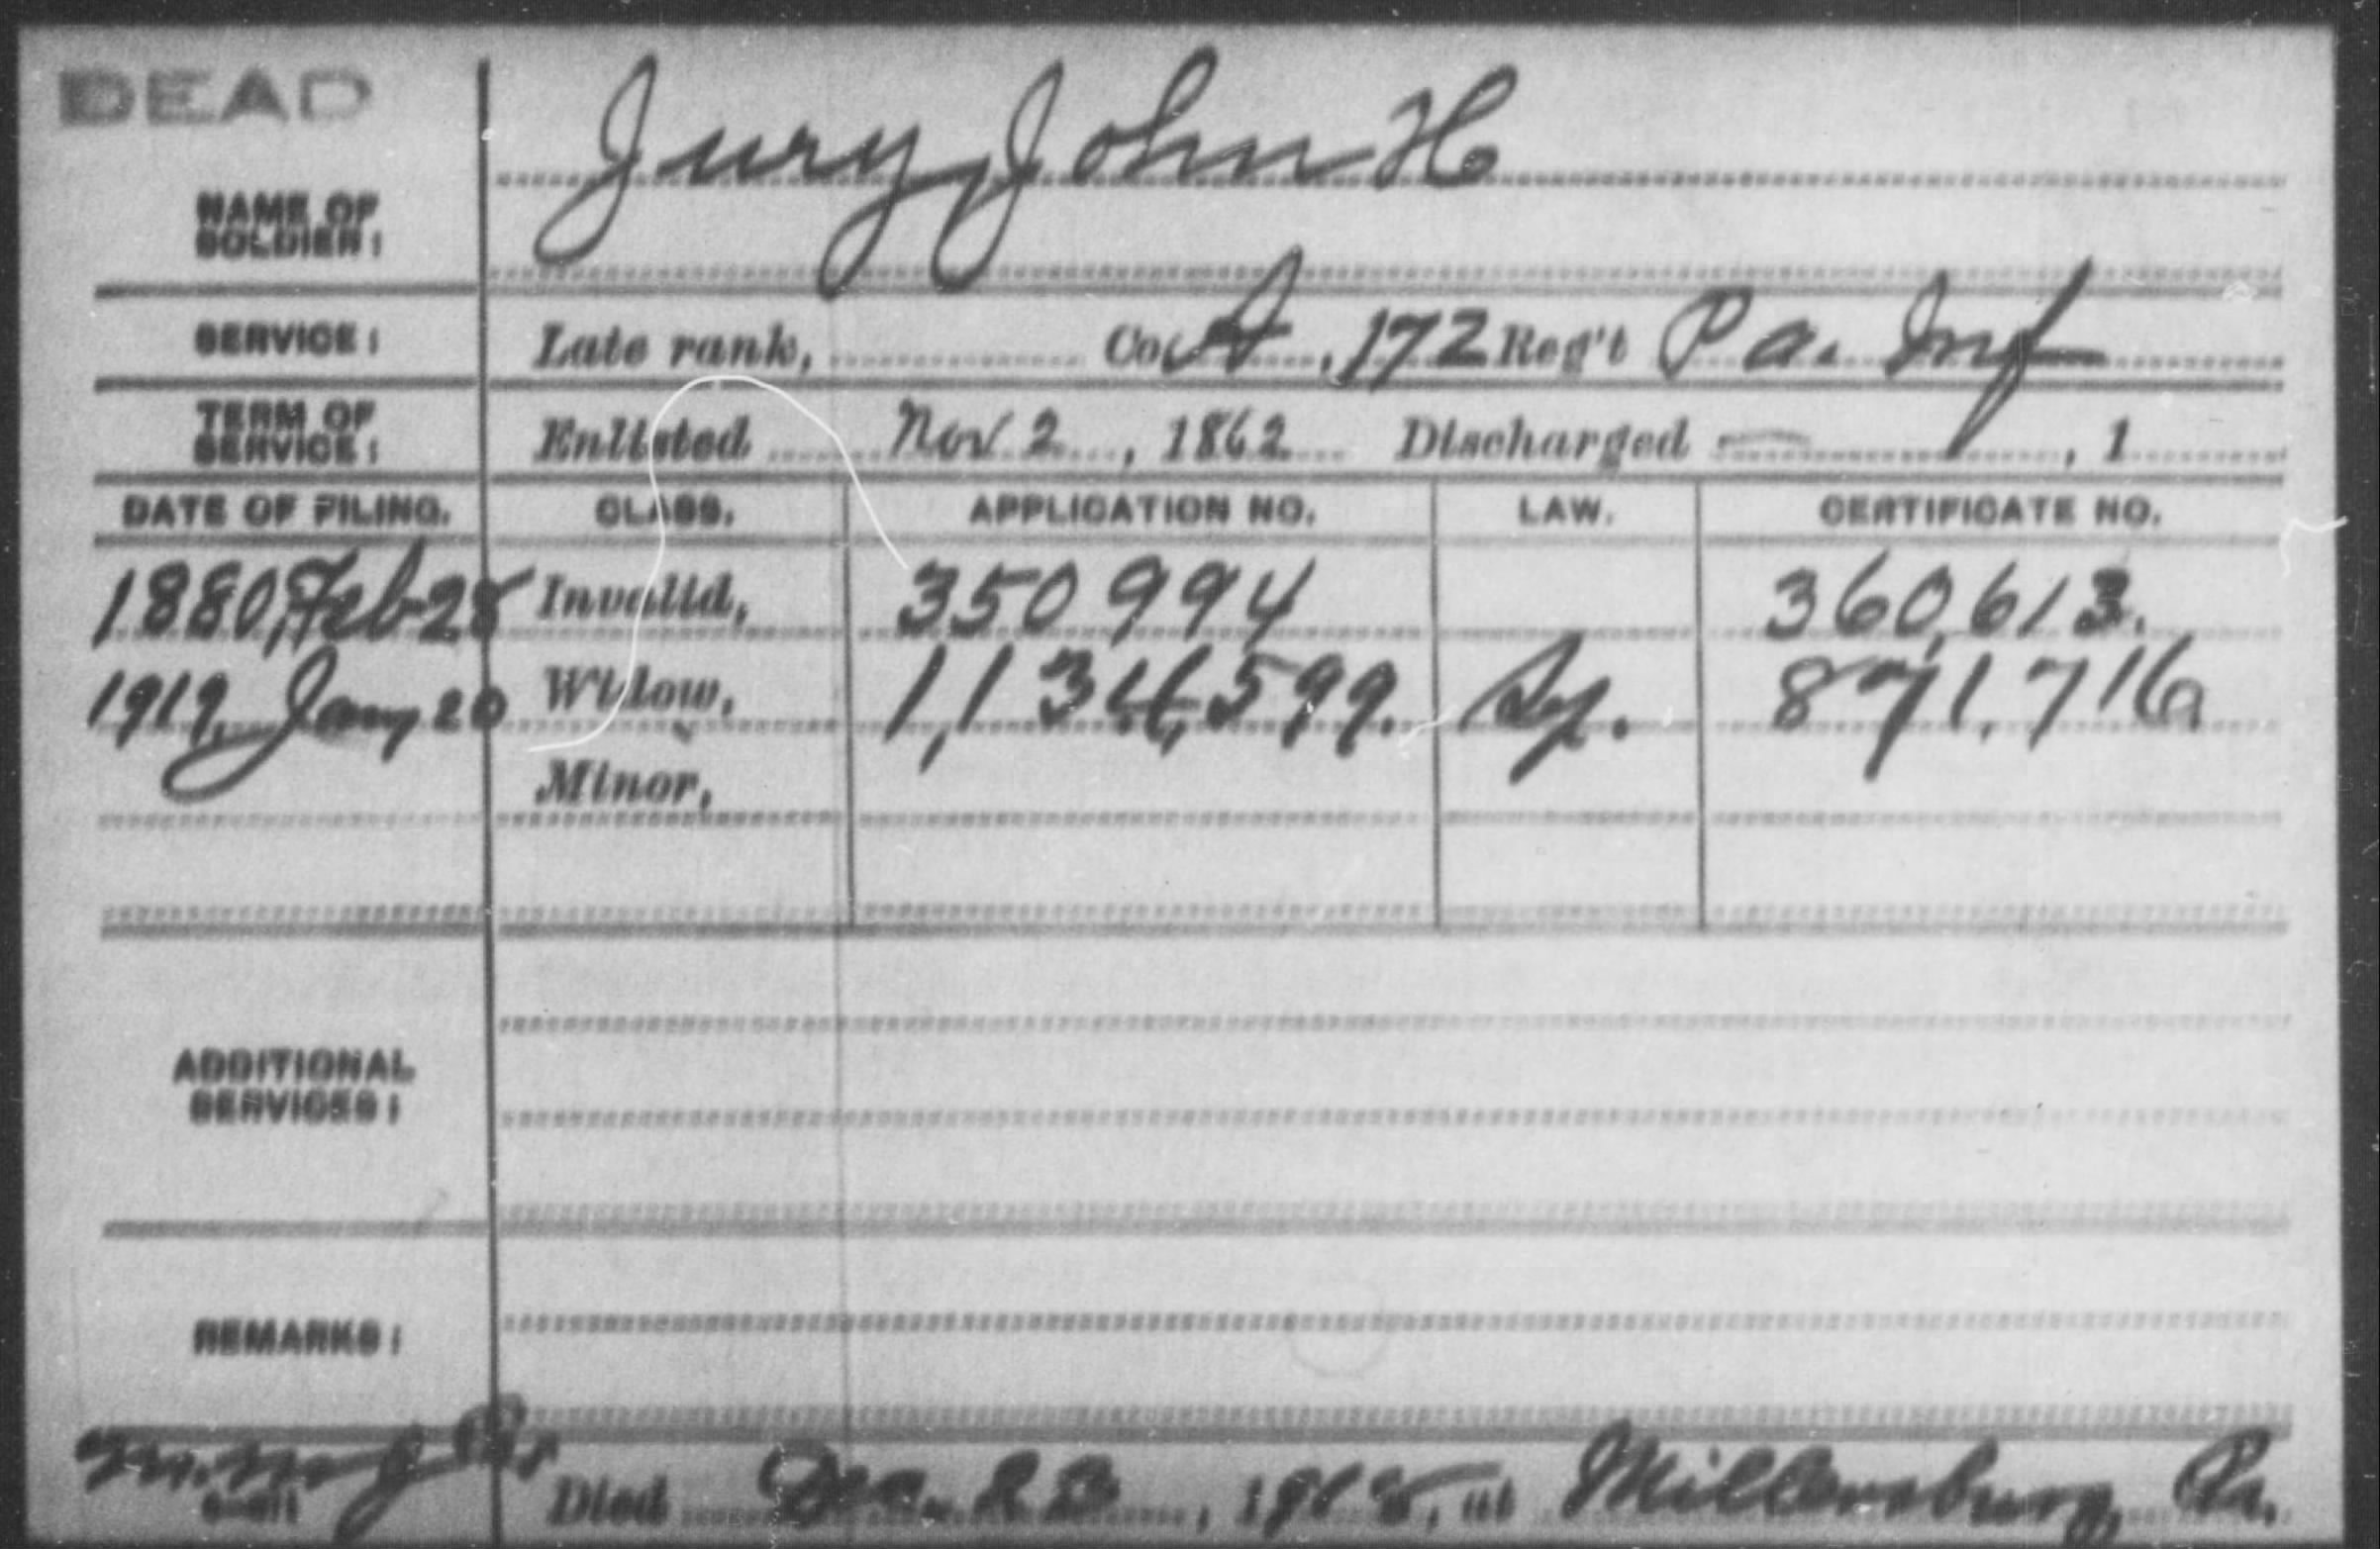 DEAD
Jury, John H
NAME OF
SOLDIER:
SERVICE: Late rank, Co. A, 172 Reg't Pa. Inf
TERM OF
SERVICE: Enlisted Nov 2, 1862 Discharged — , 1
DATE OF FILING. CLASS. APPLICATION NO. LAW. CERTIFICATE NO.
1880, Feb 28 Invalid, 350994 360,613.
1919, Jany 20 Widow, 1,134,599. 871,716
Minor,
ADDITIONAL
SERVICES:
REMARKS:
Died Dec. 23, 1918, at Millersburg, Pa.